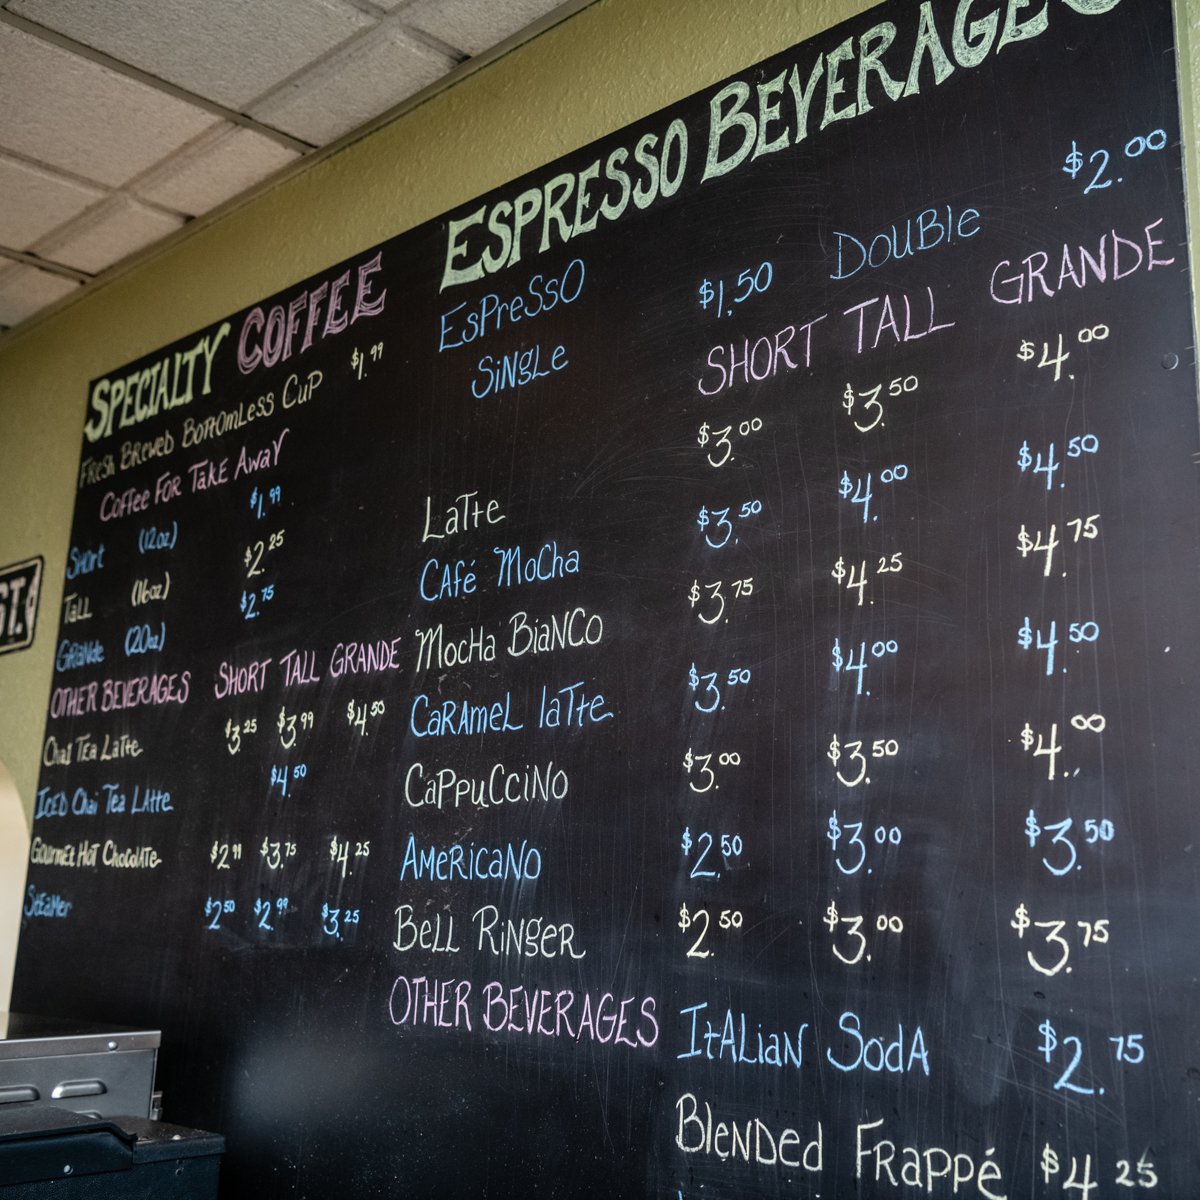 SPECIALTY COFFEE
FRESH BREWED BOTTOMLESS CUP $1.99
COFFEE FOR TAKE AWAY
SHORT (12oz) $1.99
TALL (16oz) $2.25
GRANDE (20oz) $2.75
OTHER BEVERAGES SHORT TALL GRANDE
CHAI TEA LATTE $3.25 $3.99 $4.50
ICED CHAI TEA LATTE $4.50
GOURMET HOT CHOCOLATE $2.99 $3.75 $4.25
STEAMER $2.50 $2.99 $3.25
ESPRESSO BEVERAGES
ESPRESSO
SINGLE $1.50 DOUBLE $2.00
SHORT TALL GRANDE
LATTE $3.00 $3.50 $4.00
CAFÉ MOCHA $3.50 $4.00 $4.50
MOCHA BIANCO $3.75 $4.25 $4.75
CARAMEL LATTE $3.50 $4.00 $4.50
CAPPUCCINO $3.00 $3.50 $4.00
AMERICANO $2.50 $3.00 $3.50
BELL RINGER $2.50 $3.00 $3.75
OTHER BEVERAGES
ITALIAN SODA $2.75
BLENDED FRAPPÉ $4.25
ST.